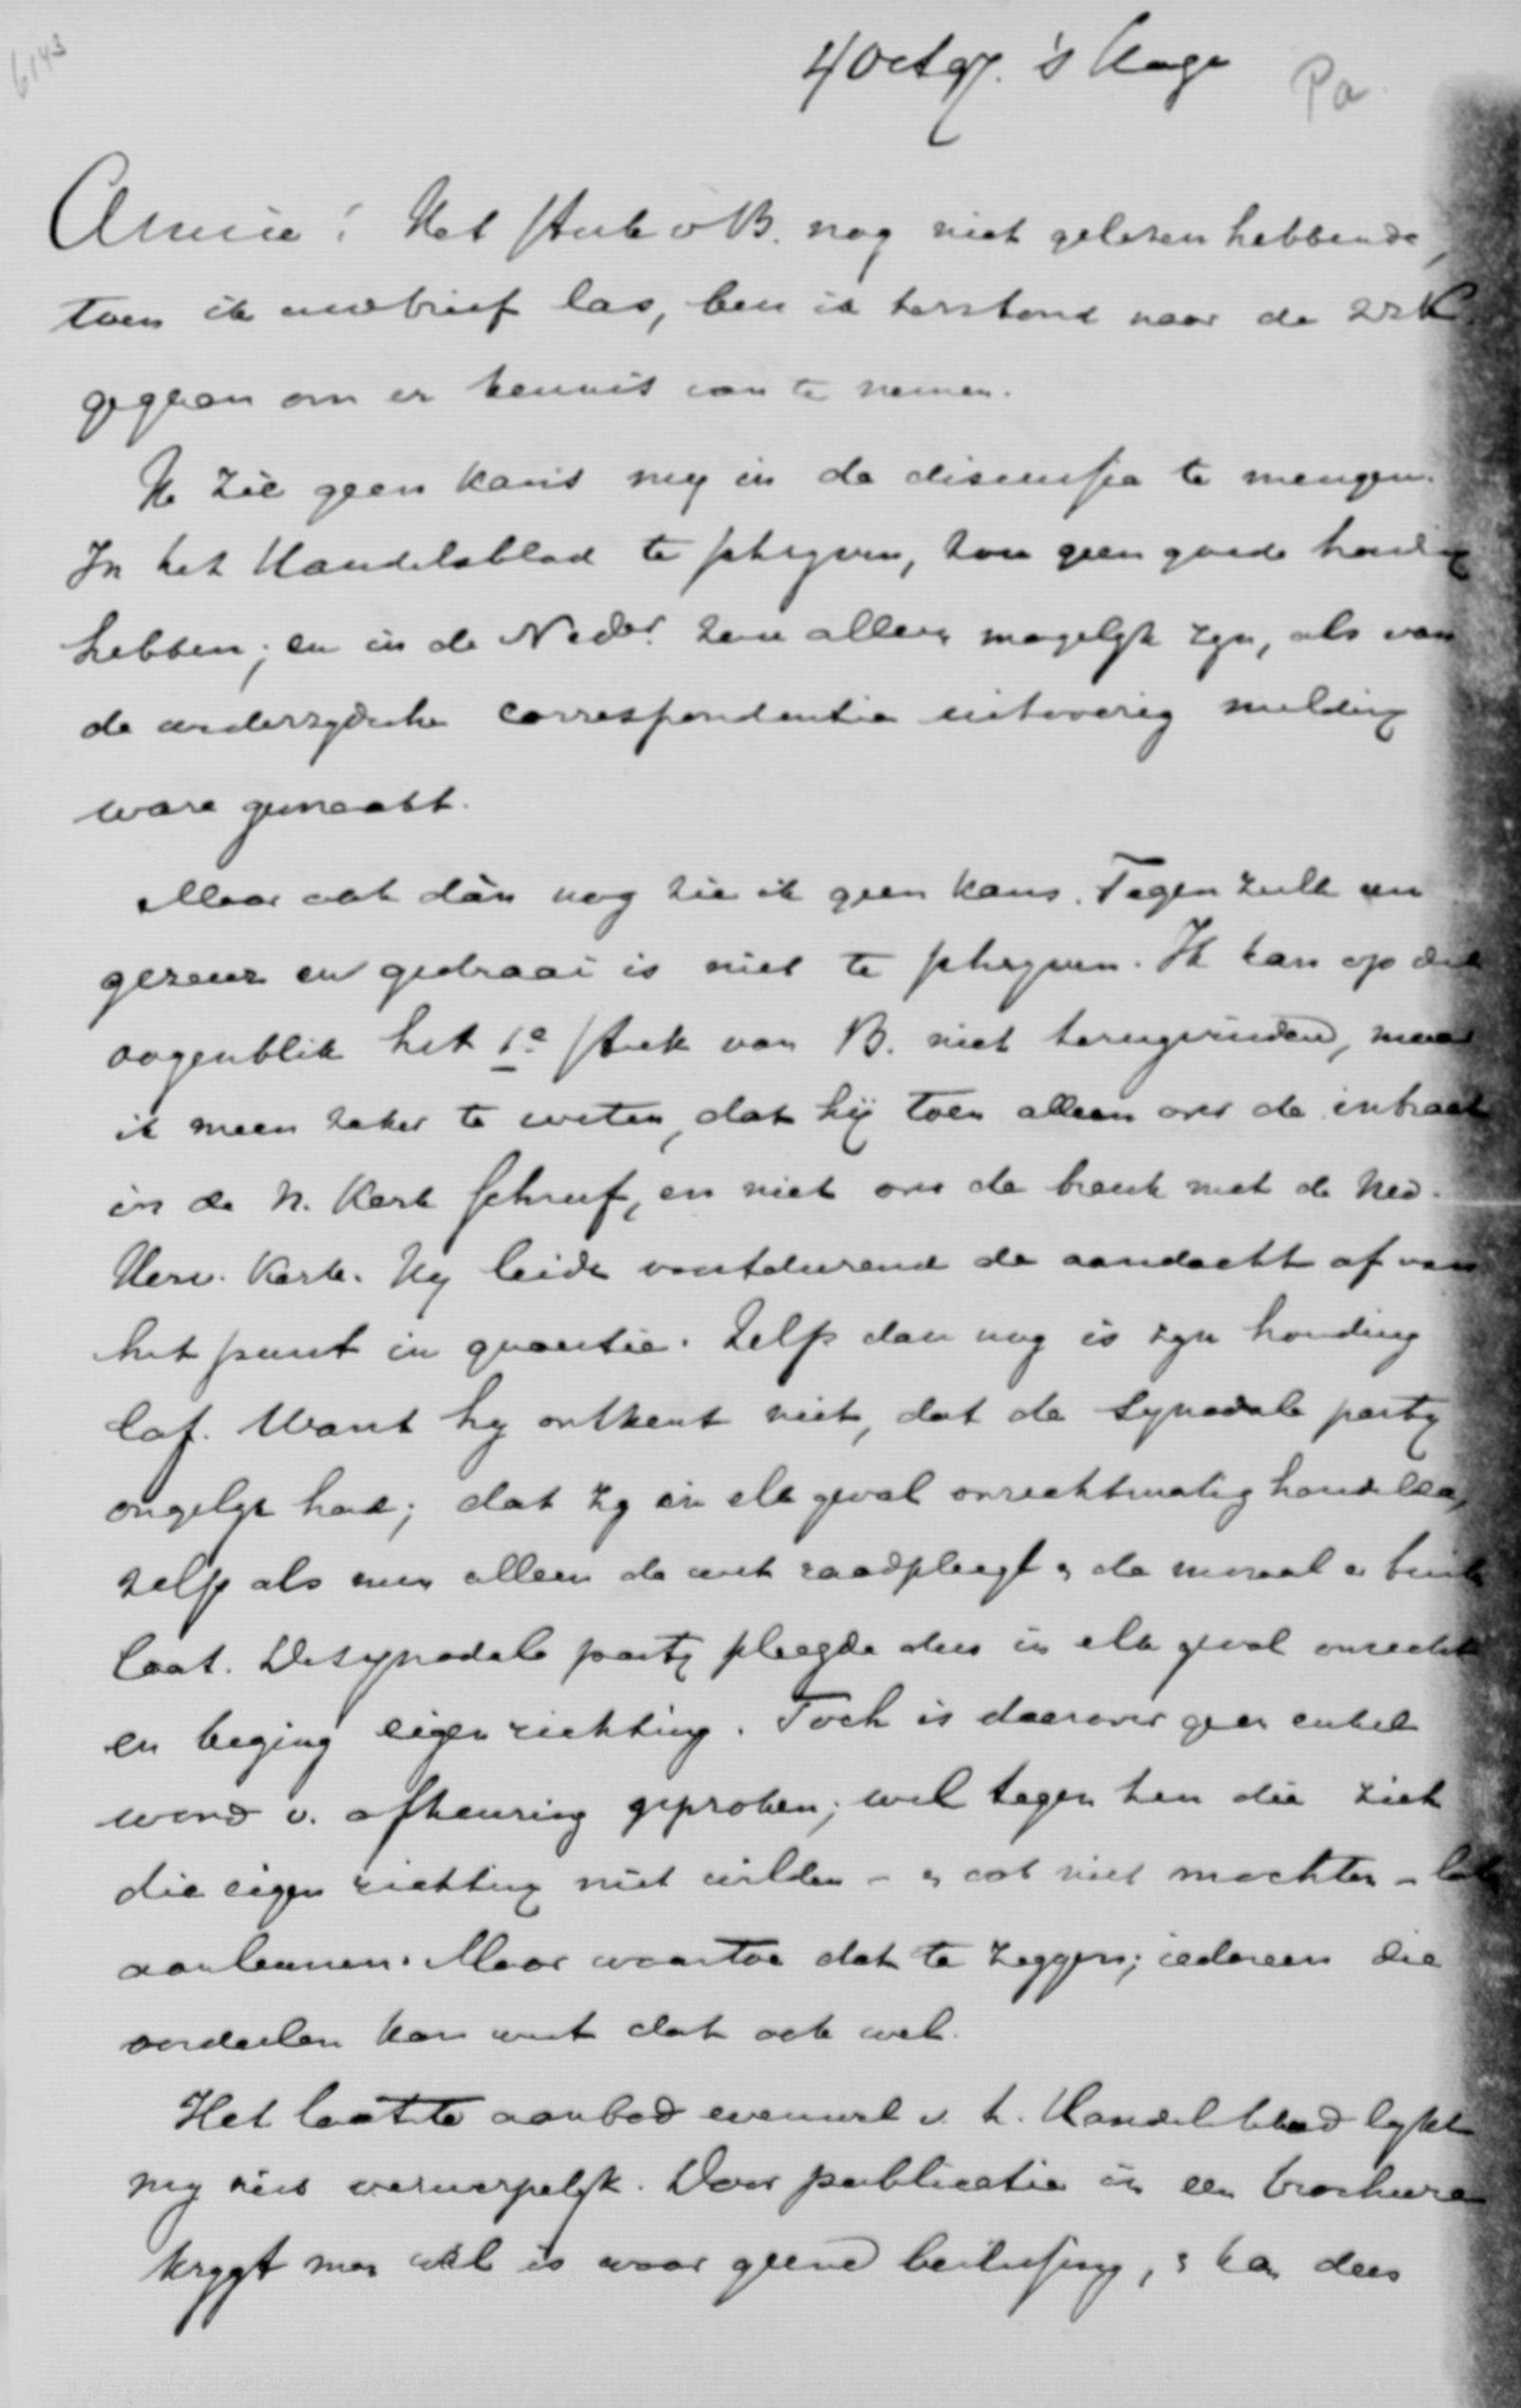 6143
4 Oct 97. 's Hage
Pa
Amice! Het stuk v B. nog niet gelezen hebbende,
toen ik uw brief las, ben ik terstond naar de 2e K.
gegaan om er kennis van te nemen.
Ik zie geen kans mij in de discussie te mengen.
In het Handelsblad te schryven, zou geen goede houding
hebben; en in de Nedr. zou alleen mogelyk zyn, als van
de anderzydsche correspondentie uitvoerig melding
ware gemaakt.
Maar ook dàn nog zie ik geen kans. Tegen zulk een
gezeur en gedraai is niet te schryven. Ik kan op dit
oogenblik het 1e stuk van B. niet terugvinden, maar
ik meen zeker te weten, dat hij toen alleen over de inbraak
in de N. Kerk schreef, en niet over de breuk met de Ned.
Herv. Kerk. Hy leidt voortdurend de aandacht af van
het punt in quaestie. Zelfs dan nog is zyn houding
laf. Want hy ontkent niet, dat de Synodale party
ongelyk had; dat zy in elk geval onrechtmatig handelde,
zelfs als men alleen de wet raadpleegt & de moraal er buiten
laat. De synodale party pleegde dus in elk geval onrecht
en beging eigen richting. Toch is daarover geen enkel
woord v. afkeuring gesproken; wel tegen hen die zich
die eigen richting niet wilden – & ook niet mochten – laten
aanleunen. Maar waartoe dat te zeggen; iedereen die
oordeelen kan weet dat ook wel.
Het laatste aanbod evenwel v. h. Handelsblad lykt
my niet verwerpelyk. Door publicatie in een brochure
krygt men wel is waar geene beslissing, & kan dus